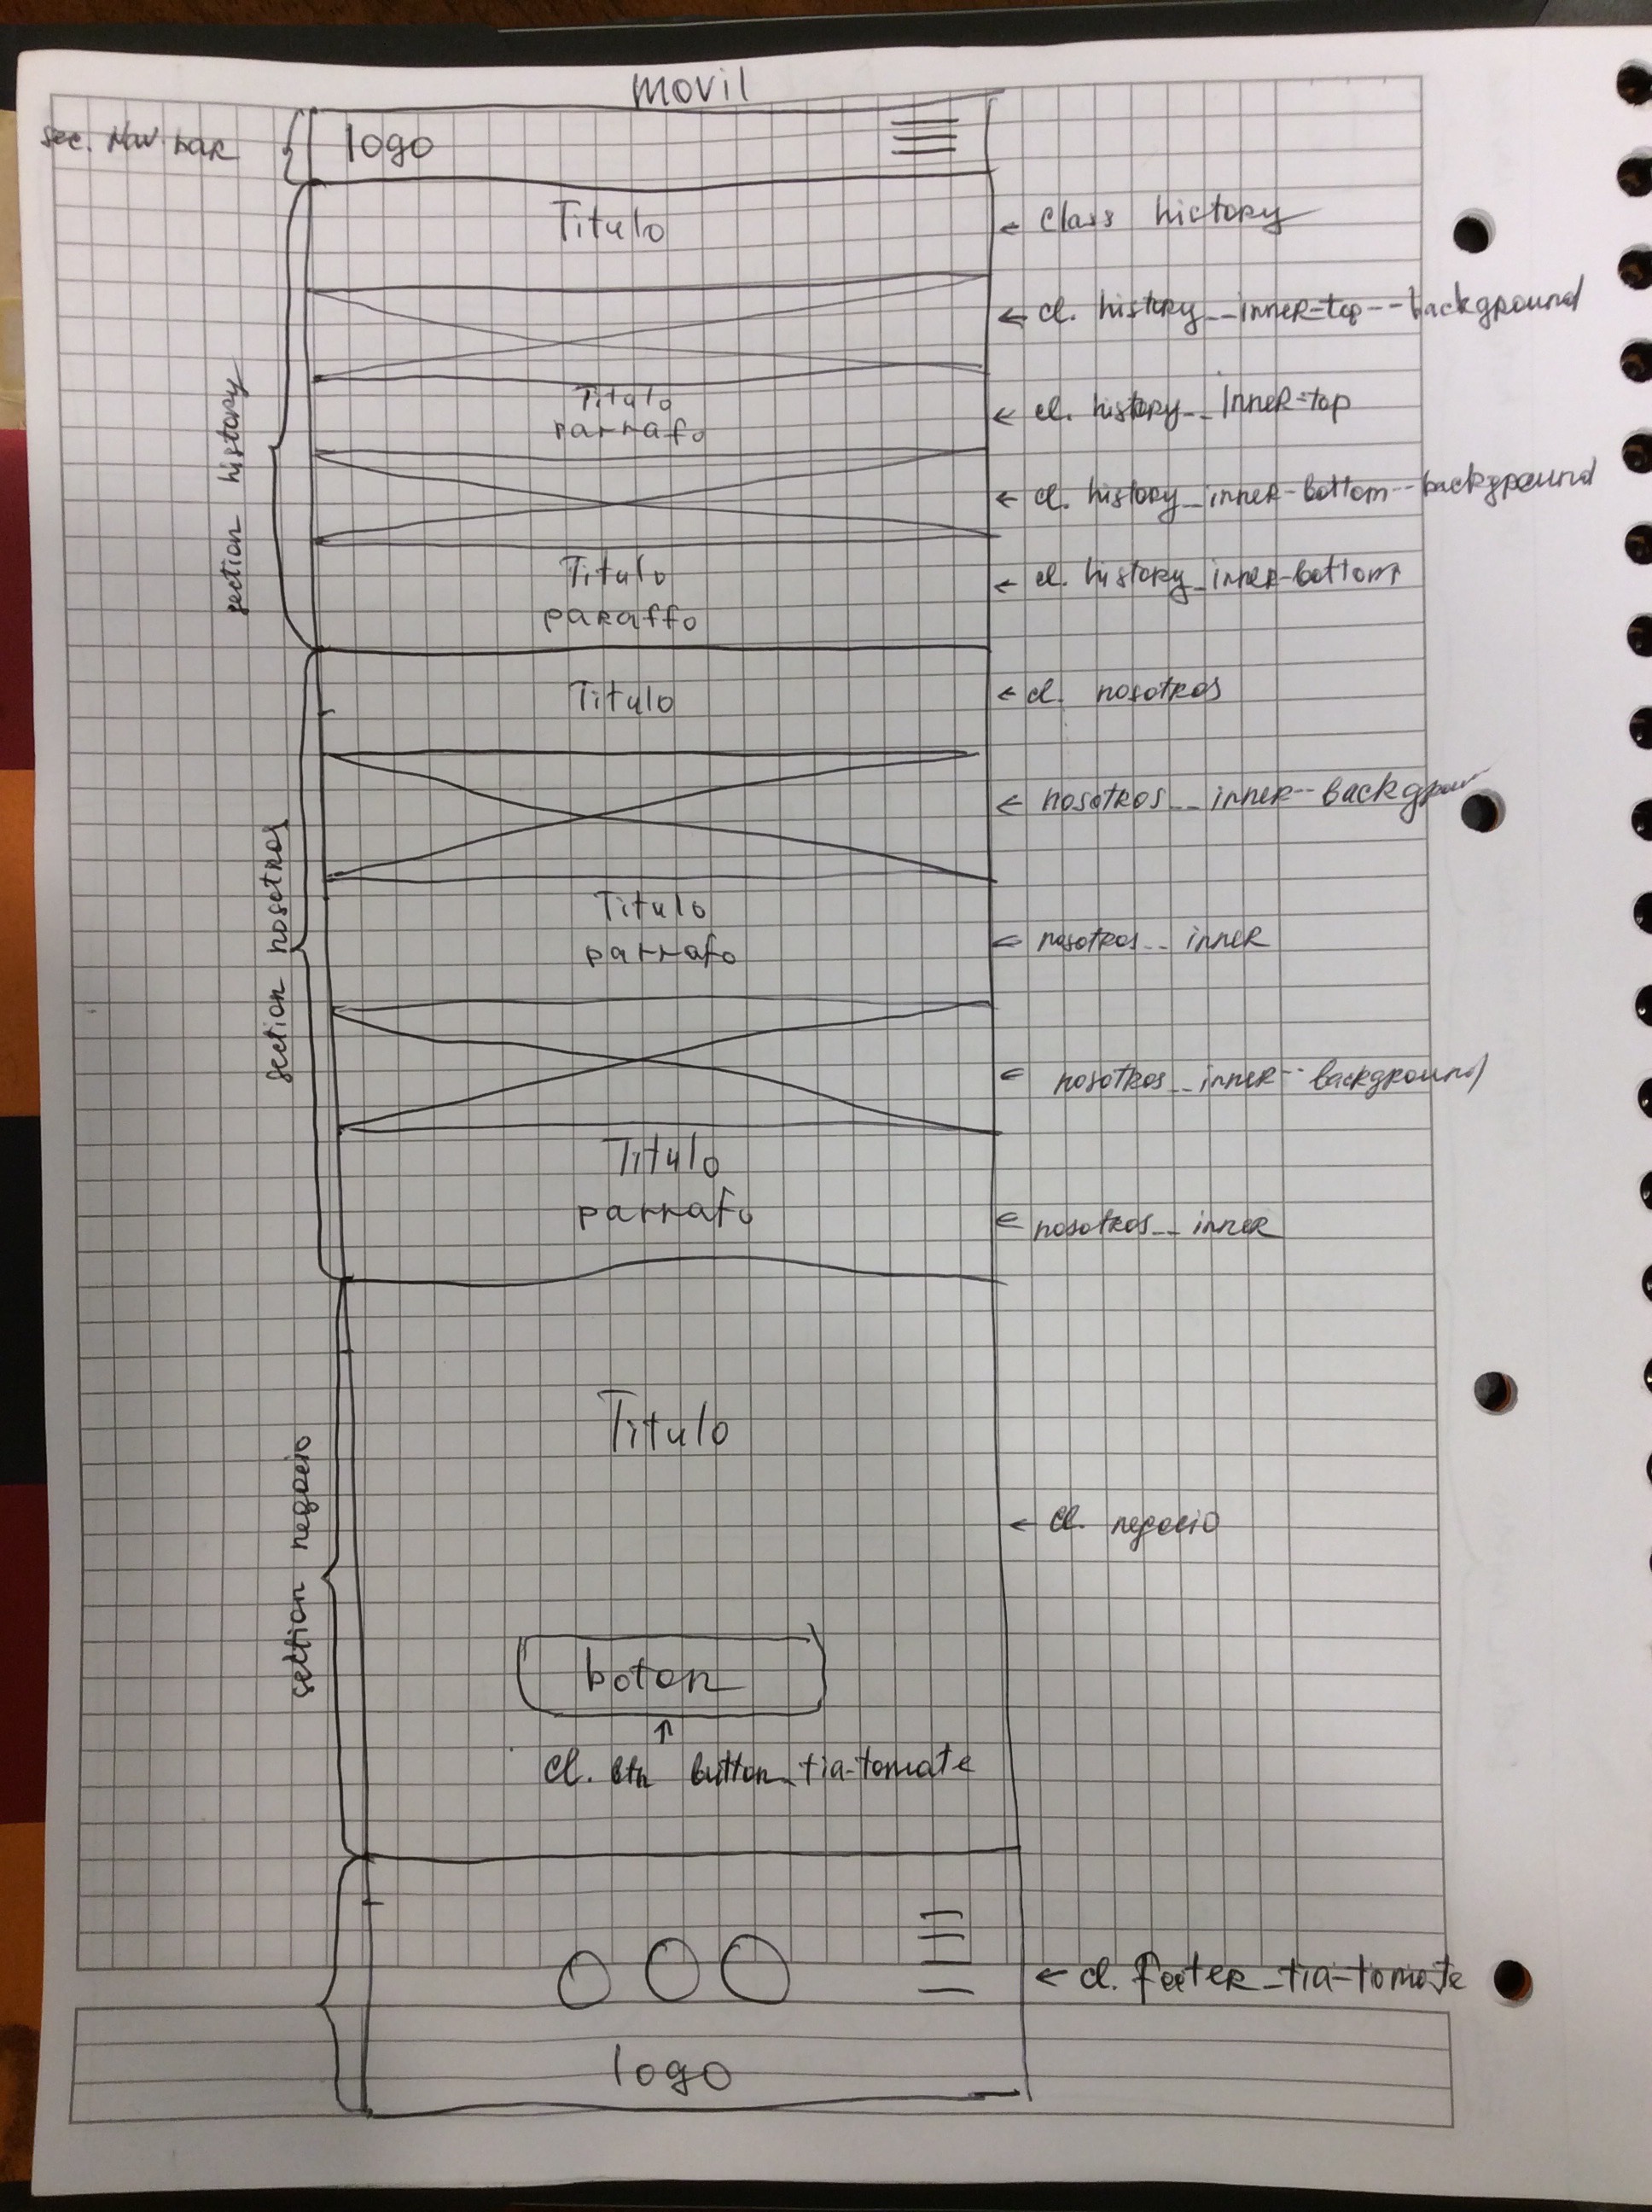 movil
sec. Nav bar
logo
Titulo
← Class history
← cl. history__inner-top--background
Titulo
parrafo
← cl. history__inner-top
section history
← cl. history_inner-bottom--background
Titulo
paraffo
← cl. history_inner-bottom
Titulo
← cl. nosotros
← nosotros__inner--backgroun
section nosotros
Titulo
parrafo
← nosotros__inner
← nosotros__inner--background
Titulo
parrafo
← nosotros__inner
Titulo
section negocio
← cl. negocio
boton
↑
cl. btn button_tia-tomate
← cl. footer_tia-tomate
logo